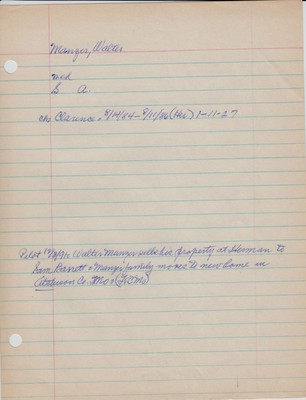 Manger, Walter
med
S A
che Clarence, 8/14/04 - 9/11/06 (Her) 1-11-27
Pilot Walter Manger sells his property at Herman to
Sam Barrett & Manger family moves to new home in
Atchison Co. Mo.